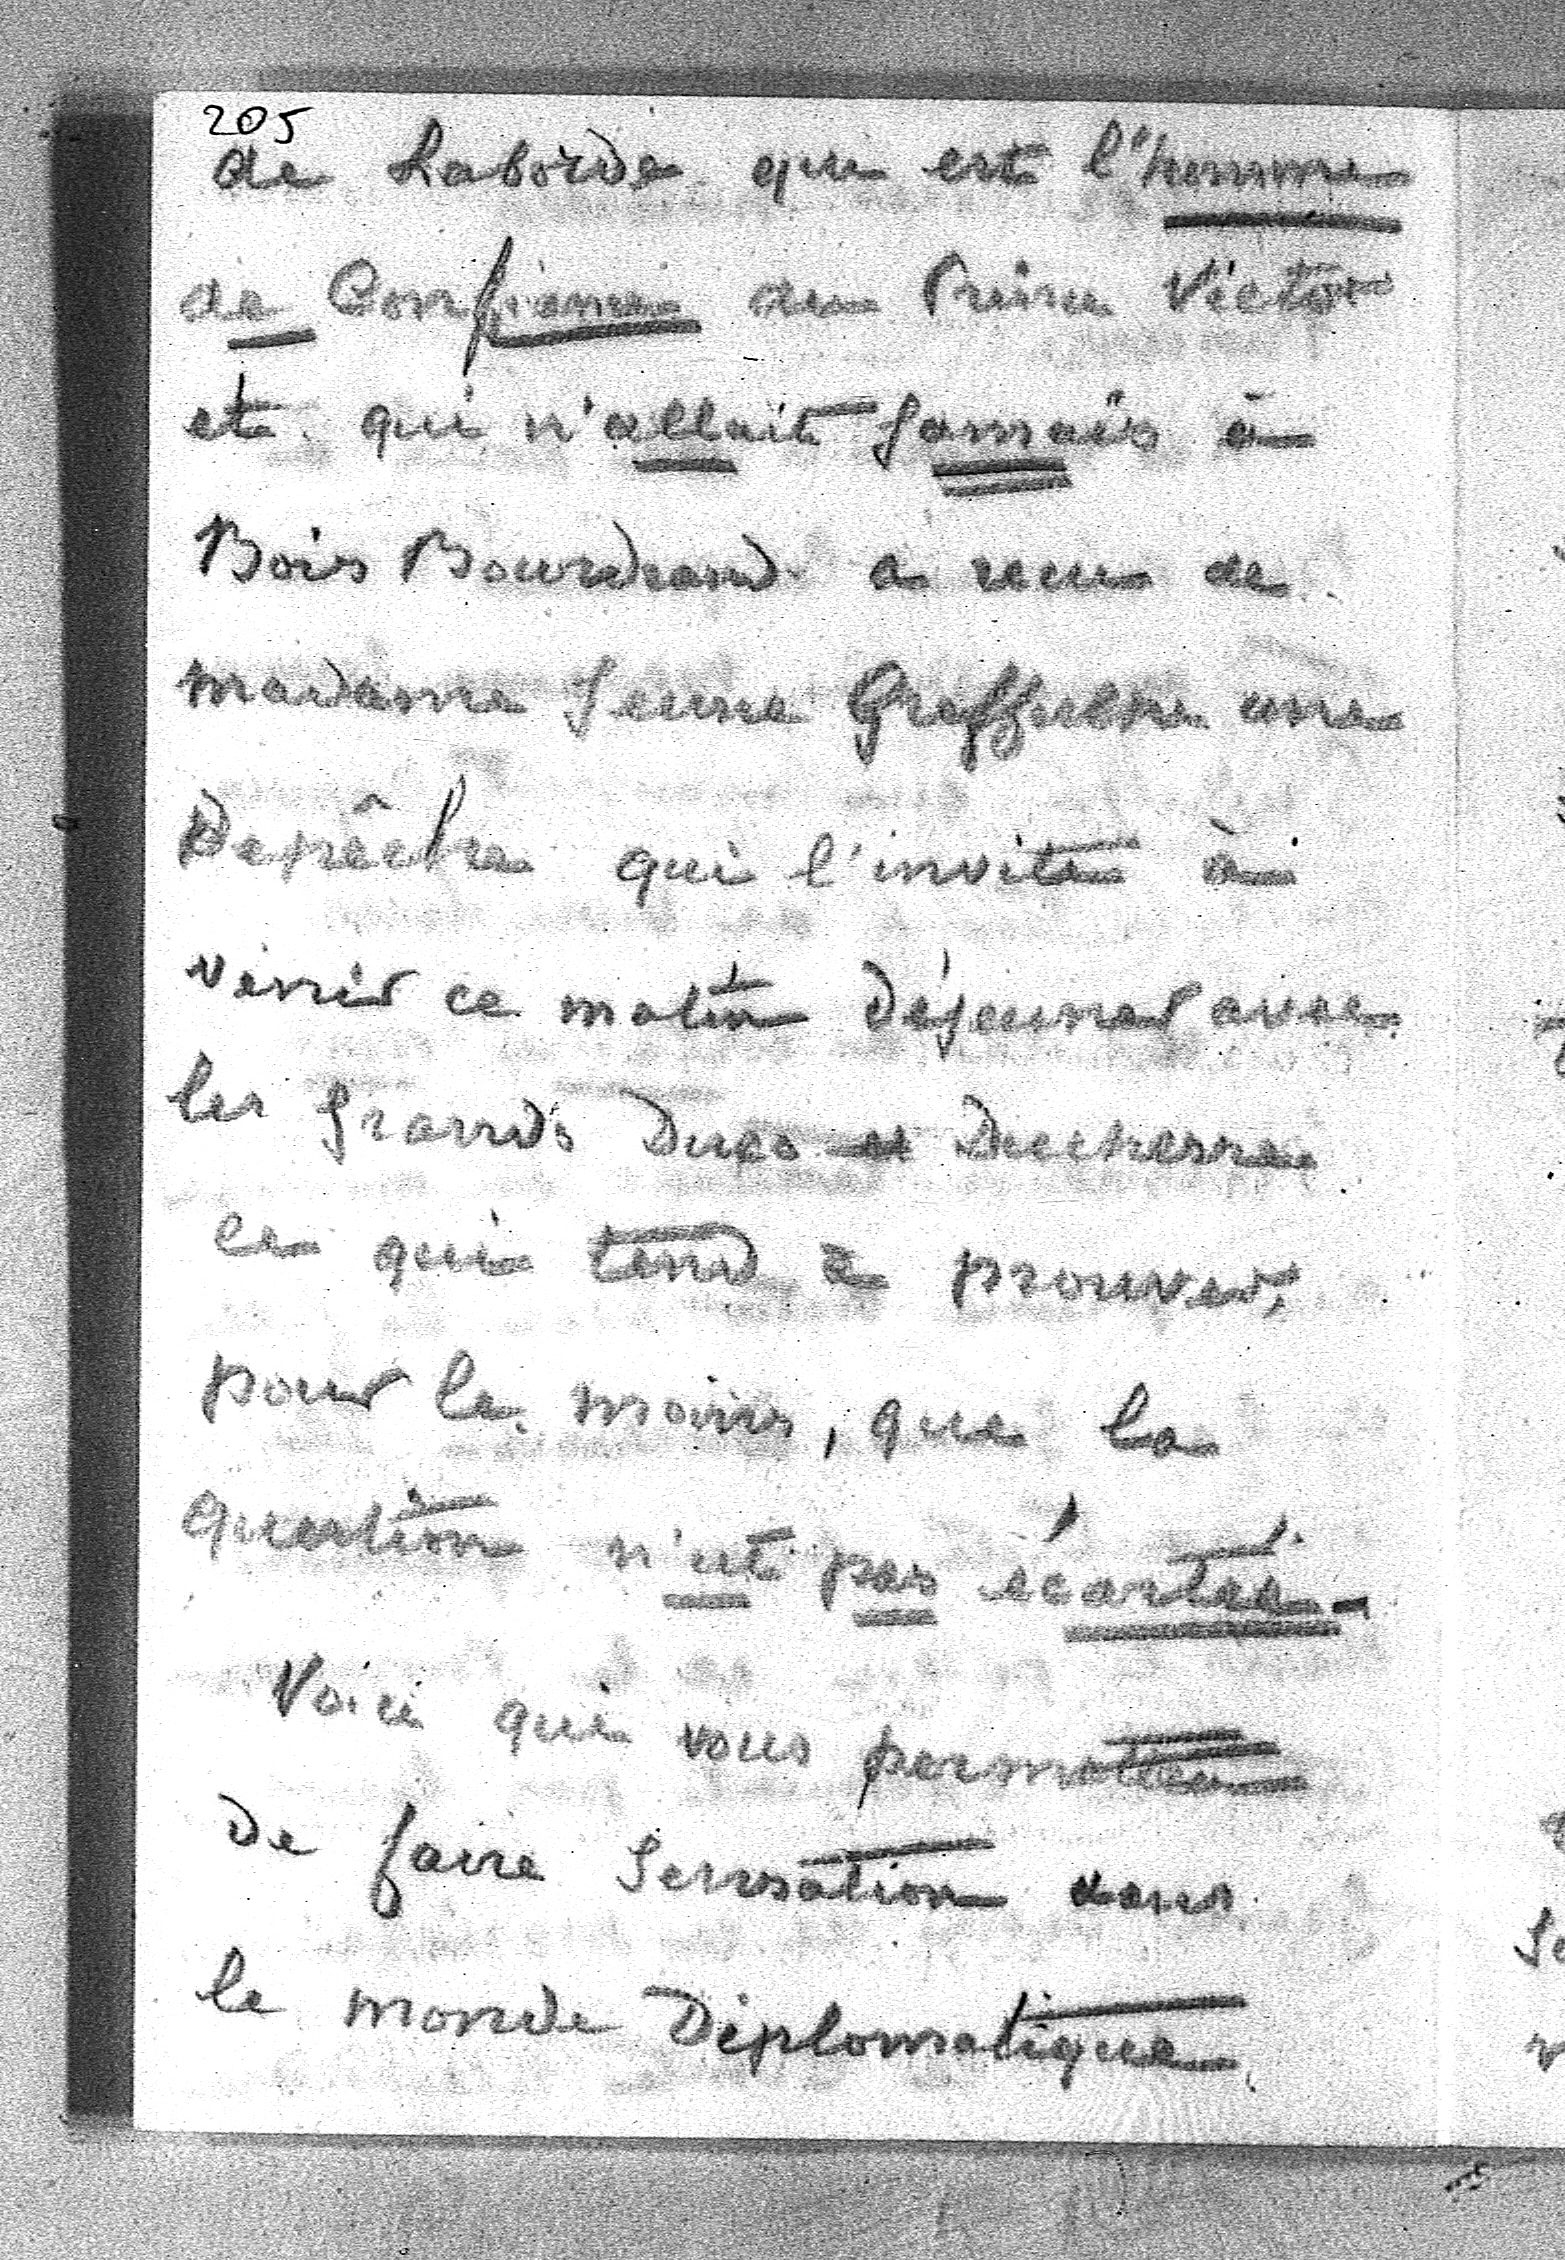 205
de Laborde qui est l'homme
de Confiance du Prince Victor
et qui n'allait Jamais à
Bois Boudrand a reçu de
madame Jeune Greffulhe une
Depêche qui l'invite à
venir ce matin Déjeuner avec
les Grands Ducs et Duchesses
ce qui tend à prouver,
pour le moins, que la
question n'est pas écartée -
Voici qui vous permettra
De faire Sensation dans
le monde Diplomatique.